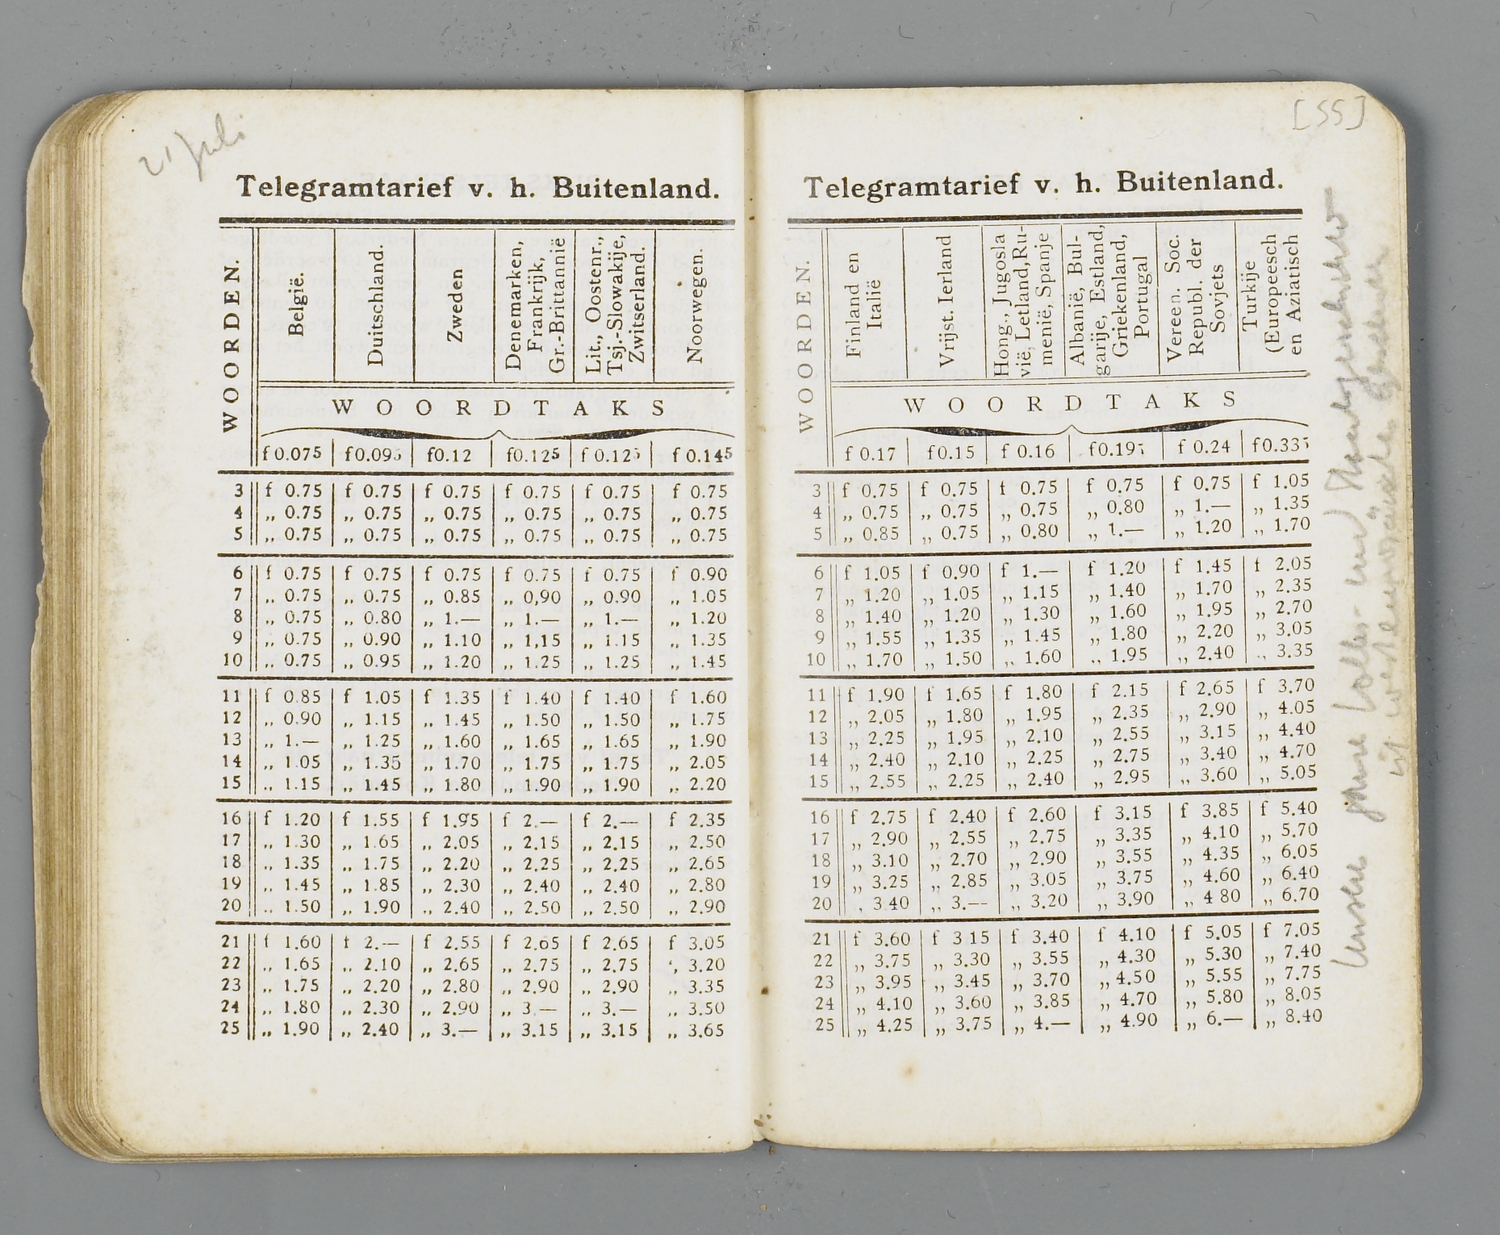 21 Juli
Telegramtarief v. h. Buitenland.
WOORDEN. | België. | Duitschland. | Zweden | Denemarken, Frankrijk, Gr.-Brittannië | Lit., Oostenr., Tsj.-Slowakije, Zwitserland. | Noorwegen.
WOORDTAKS
f 0.075 | f 0.095 | f 0.12 | f 0.125 | f 0.125 | f 0.145
3 f 0.75 | f 0.75 | f 0.75 | f 0.75 | f 0.75 | f 0.75
4 „ 0.75 | „ 0.75 | „ 0.75 | „ 0.75 | „ 0.75 | „ 0.75
5 „ 0.75 | „ 0.75 | „ 0.75 | „ 0.75 | „ 0.75 | „ 0.75
6 f 0.75 | f 0.75 | f 0.75 | f 0.75 | f 0.75 | f 0.90
7 „ 0.75 | „ 0.75 | „ 0.85 | „ 0,90 | „ 0.90 | „ 1.05
8 „ 0.75 | „ 0.80 | „ 1.— | „ 1.— | „ 1.— | „ 1.20
9 „ 0.75 | „ 0.90 | „ 1.10 | „ 1,15 | „ 1.15 | „ 1.35
10 „ 0.75 | „ 0.95 | „ 1.20 | „ 1.25 | „ 1.25 | „ 1.45
11 f 0.85 | f 1.05 | f 1.35 | f 1.40 | f 1.40 | f 1.60
12 „ 0.90 | „ 1.15 | „ 1.45 | „ 1.50 | „ 1.50 | „ 1.75
13 „ 1.— | „ 1.25 | „ 1.60 | „ 1.65 | „ 1.65 | „ 1.90
14 „ 1.05 | „ 1.35 | „ 1.70 | „ 1.75 | „ 1.75 | „ 2.05
15 „ 1.15 | „ 1.45 | „ 1.80 | „ 1.90 | „ 1.90 | „ 2.20
16 f 1.20 | f 1.55 | f 1.95 | f 2.— | f 2.— | f 2.35
17 „ 1.30 | „ 1.65 | „ 2.05 | „ 2.15 | „ 2.15 | „ 2.50
18 „ 1.35 | „ 1.75 | „ 2.20 | „ 2.25 | „ 2.25 | „ 2.65
19 „ 1.45 | „ 1.85 | „ 2.30 | „ 2.40 | „ 2.40 | „ 2.80
20 „ 1.50 | „ 1.90 | „ 2.40 | „ 2.50 | „ 2.50 | „ 2.90
21 f 1.60 | f 2.— | f 2.55 | f 2.65 | f 2.65 | f 3.05
22 „ 1.65 | „ 2.10 | „ 2.65 | „ 2.75 | „ 2.75 | „ 3.20
23 „ 1.75 | „ 2.20 | „ 2.80 | „ 2.90 | „ 2.90 | „ 3.35
24 „ 1.80 | „ 2.30 | „ 2.90 | „ 3.— | „ 3.— | „ 3.50
25 „ 1.90 | „ 2.40 | „ 3.— | „ 3.15 | „ 3.15 | „ 3.65
[55]
Telegramtarief v. h. Buitenland.
WOORDEN. | Finland en Italië | Vrijst. Ierland | Hong., Jugosla vië, Letland, Ru- menië, Spanje | Albanië, Bul- garije, Estland, Griekenland, Portugal | Vereen. Soc. Republ. der Sovjets | Turkije (Europeesch en Aziatisch
WOORDTAKS
f 0.17 | f 0.15 | f 0.16 | f 0.195 | f 0.24 | f 0.335
3 f 0.75 | f 0.75 | f 0.75 | f 0.75 | f 0.75 | f 1.05
4 „ 0.75 | „ 0.75 | „ 0.75 | „ 0.80 | „ 1.— | „ 1.35
5 „ 0.85 | „ 0.75 | „ 0.80 | „ 1.— | „ 1.20 | „ 1.70
6 f 1.05 | f 0.90 | f 1.— | f 1.20 | f 1.45 | f 2.05
7 „ 1.20 | „ 1.05 | „ 1.15 | „ 1.40 | „ 1.70 | „ 2.35
8 „ 1.40 | „ 1.20 | „ 1.30 | „ 1.60 | „ 1.95 | „ 2.70
9 „ 1.55 | „ 1.35 | „ 1.45 | „ 1.80 | „ 2.20 | „ 3.05
10 „ 1.70 | „ 1.50 | „ 1.60 | „ 1.95 | „ 2.40 | „ 3.35
11 f 1.90 | f 1.65 | f 1.80 | f 2.15 | f 2.65 | f 3.70
12 „ 2.05 | „ 1.80 | „ 1.95 | „ 2.35 | „ 2.90 | „ 4.05
13 „ 2.25 | „ 1.95 | „ 2.10 | „ 2.55 | „ 3.15 | „ 4.40
14 „ 2.40 | „ 2.10 | „ 2.25 | „ 2.75 | „ 3.40 | „ 4.70
15 „ 2.55 | „ 2.25 | „ 2.40 | „ 2.95 | „ 3.60 | „ 5.05
16 f 2.75 | f 2.40 | f 2.60 | f 3.15 | f 3.85 | f 5.40
17 „ 2.90 | „ 2.55 | „ 2.75 | „ 3.35 | „ 4.10 | „ 5.70
18 „ 3.10 | „ 2.70 | „ 2.90 | „ 3.55 | „ 4.35 | „ 6.05
19 „ 3.25 | „ 2.85 | „ 3.05 | „ 3.75 | „ 4.60 | „ 6.40
20 „ 3 40 | „ 3.— | „ 3.20 | „ 3.90 | „ 4 80 | „ 6.70
21 f 3.60 | f 3 15 | f 3.40 | f 4.10 | f 5.05 | f 7.05
22 „ 3.75 | „ 3.30 | „ 3.55 | „ 4.30 | „ 5.30 | „ 7.40
23 „ 3.95 | „ 3.45 | „ 3.70 | „ 4.50 | „ 5.55 | „ 7.75
24 „ 4.10 | „ 3.60 | „ 3.85 | „ 4.70 | „ 5.80 | „ 8.05
25 „ 4.25 | „ 3.75 | „ 4.— | „ 4.90 | „ 6.— | „ 8.40